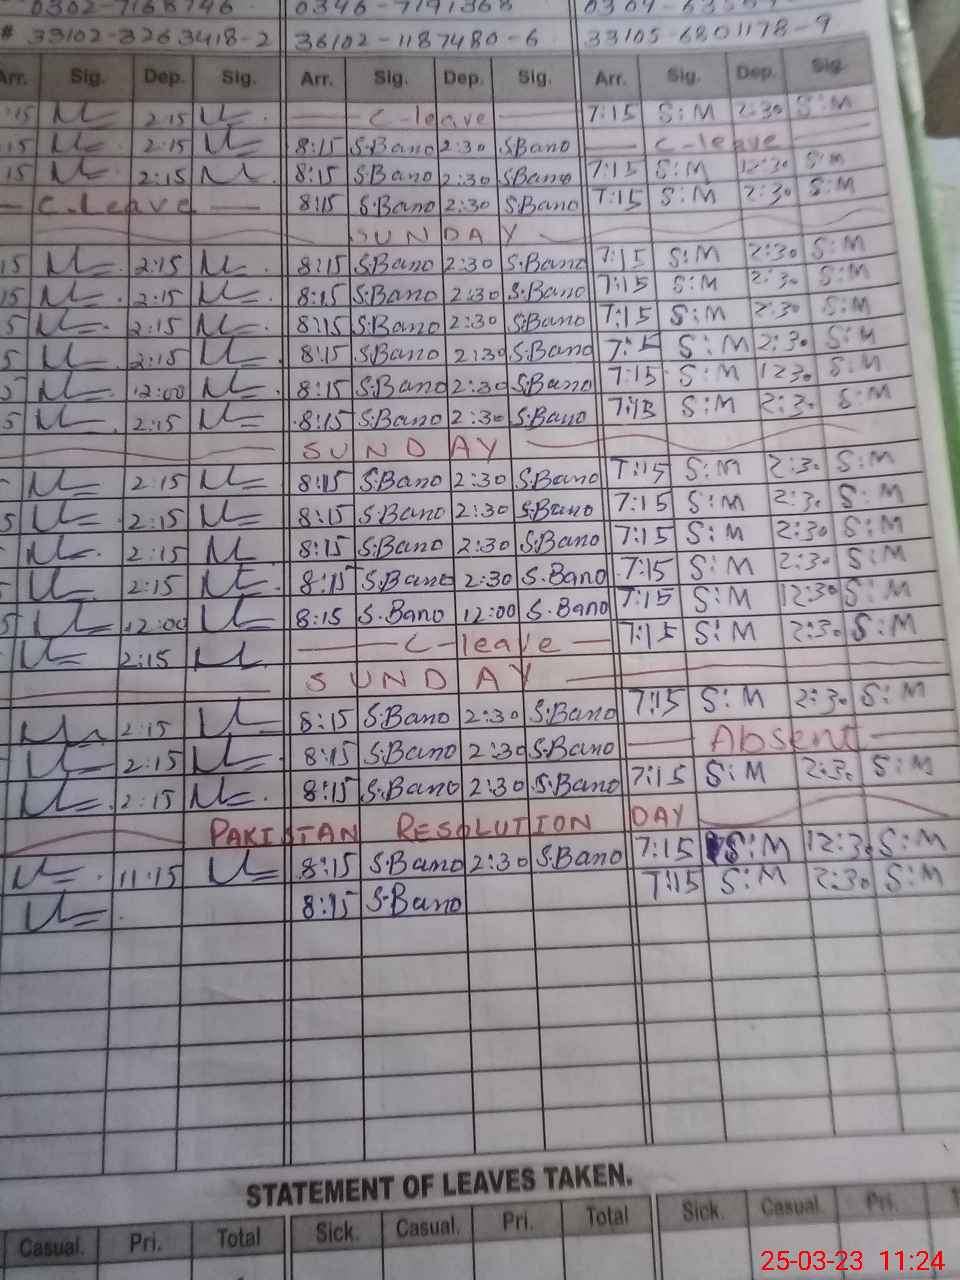 0302-7168746 0346-7191368
# 33102-3263418-2 36102-1187480-6 33105-6801178-9
Arr. Sig. Dep. Sig. Arr. Sig. Dep. Sig. Arr. Sig. Dep. Sig.
:15 2:15 C-leave 7:15 S:M 2:30 S:M
15 2:15 8:15 S.Bano 2:30 S.Bano C-leave
15 2:15 8:15 S.Bano 2:30 S.Bano 7:15 S:M 12:30 S:M
C.Leave 8:15 S.Bano 2:30 S.Bano 7:15 S:M 2:30 S:M
SUNDAY
15 2:15 8:15 S.Bano 2:30 S.Bano 7:15 S:M 2:30 S:M
15 2:15 8:15 S.Bano 2:30 S.Bano 7:15 S:M 2:30 S:M
5 2:15 8:15 S.Bano 2:30 S.Bano 7:15 S:M 2:30 S:M
5 2:15 8:15 S.Bano 2:30 S.Bano 7:15 S:M 2:30 S:M
5 12:00 8:15 S.Bano 2:30 S.Bano 7:15 S:M 1230 S:M
5 2:15 8:15 S.Bano 2:30 S.Bano 7:15 S:M 2:30 S:M
SUNDAY
2:15 8:15 S.Bano 2:30 S.Bano 7:15 S:M 2:30 S:M
5 2:15 8:15 S.Bano 2:30 S.Bano 7:15 S:M 2:30 S:M
2:15 8:15 S.Bano 2:30 S.Bano 7:15 S:M 2:30 S:M
2:15 8:15 S.Bano 2:30 S.Bano 7:15 S:M 2:30 S:M
5 12:00 8:15 S.Bano 12:00 S.Bano 7:15 S:M 12:30 S:M
2:15 C-leave 7:15 S:M 2:30 S:M
SUNDAY
2:15 8:15 S.Bano 2:30 S.Bano 7:15 S:M 2:30 S:M
2:15 8:15 S.Bano 2:30 S.Bano Absent
2:15 8:15 S.Bano 2:30 S.Bano 7:15 S:M 2:30 S:M
PAKISTAN RESOLUTION DAY
11:15 8:15 S.Bano 2:30 S.Bano 7:15 S:M 12:30 S:M
8:15 S.Bano 7:15 S:M 2:30 S:M
STATEMENT OF LEAVES TAKEN.
Casual. Pri. Total Sick. Casual. Pri. Total Sick. Casual. Pri. T
25-03-23 11:24